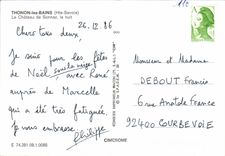 THONON-les-BAINS (Hte-Savoie)
Le Château de Sonnaz, la nuit
26.12.86
Chers tous deux,
Je suis pour les fêtes
de Noël sous la neige avec René
auprès de Marcelle
qui a été très fatiguée,
Je vous embrasse,
Philippe
Monsieur et Madame
DEBOUT Francis
6 rue Anatole France
92400 COURBEVOIE